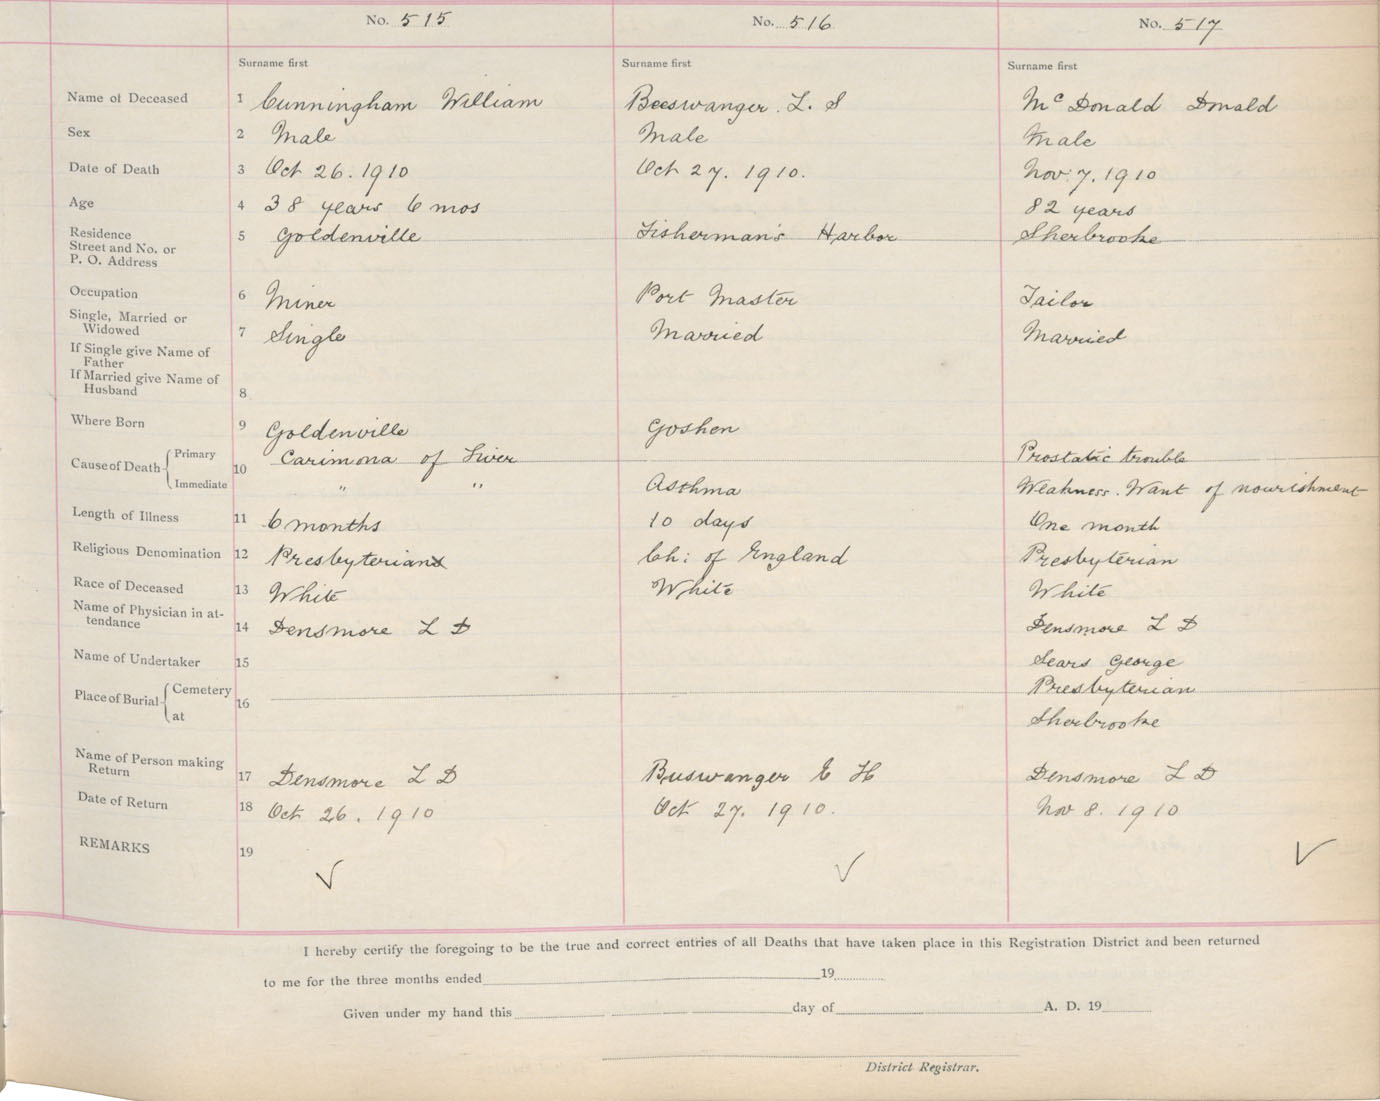 No. 515 No. 516 No. 517
Surname first Surname first Surname first
Name of Deceased 1 Cunningham William Beeswanger. L. S Mc Donald Donald
Sex 2 Male Male Male
Date of Death 3 Oct 26. 1910 Oct 27. 1910. Nov. 7. 1910
Age 4 38 years 6 mos 82 years
Residence
Street and No. or 5 Goldenville Fisherman's Harbor Sherbrooke
P. O. Address
Occupation 6 Miner Port Master Tailor
Single, Married or
Widowed 7 Single Married Married
If Single give Name of
Father
If Married give Name of
Husband 8
Where Born 9 Goldenville Goshen
Cause of Death Primary 10 Carimona of Liver Prostatic trouble
Immediate " " Asthma Weakness. Want of nourishment
Length of Illness 11 6 months 10 days One month
Religious Denomination 12 Presbyterian Ch: of England Presbyterian
Race of Deceased 13 White White White
Name of Physician in at-
tendance 14 Densmore L D Densmore L D
Name of Undertaker 15 Sears George
Place of Burial Cemetery 16 Presbyterian
at Sherbrooke
Name of Person making
Return 17 Densmore L D Buswanger E H Densmore L D
Date of Return 18 Oct 26. 1910 Oct 27. 1910. Nov 8. 1910
REMARKS 19
I hereby certify the foregoing to be the true and correct entries of all Deaths that have taken place in this Registration District and been returned
to me for the three months ended 19
Given under my hand this day of A. D. 19
District Registrar.